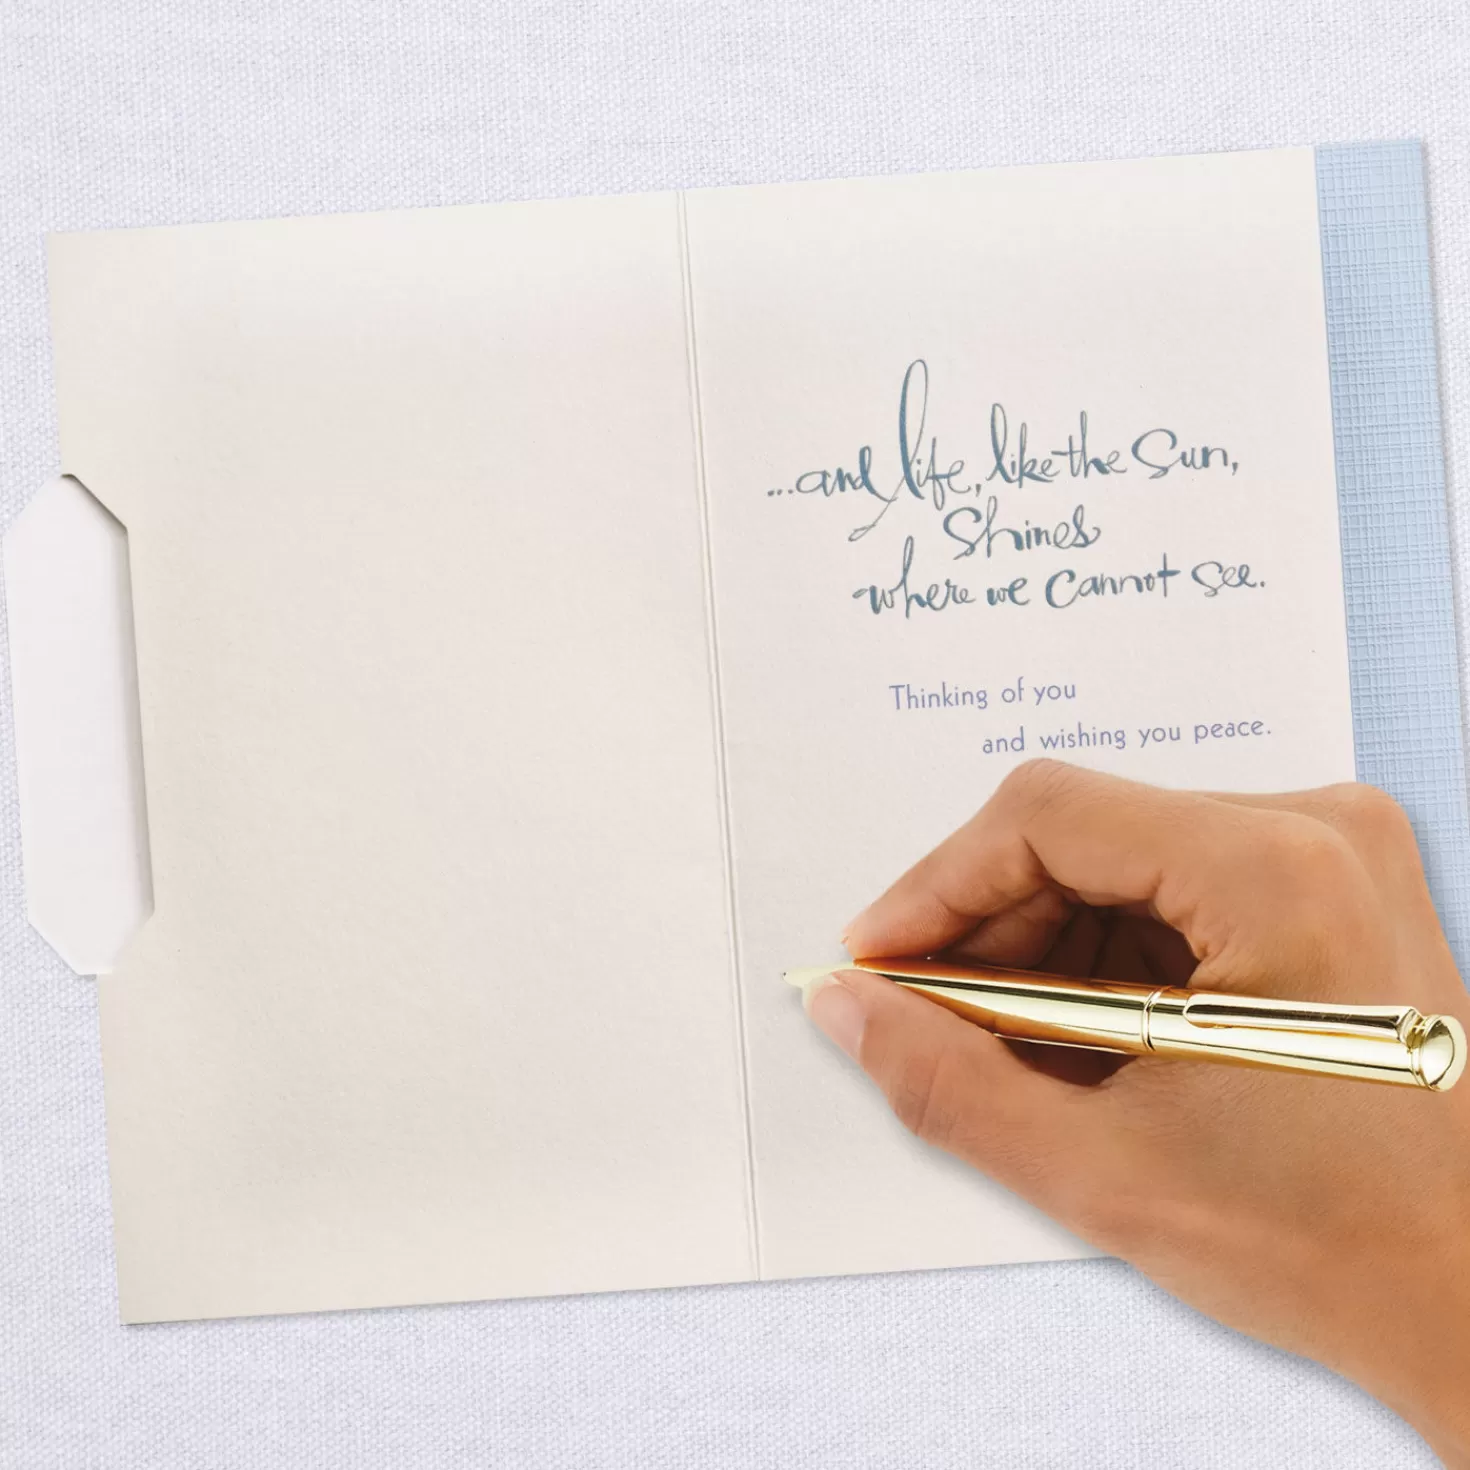 ...and life, like the Sun,
Shines
where we cannot see.
Thinking of you
and wishing you peace.